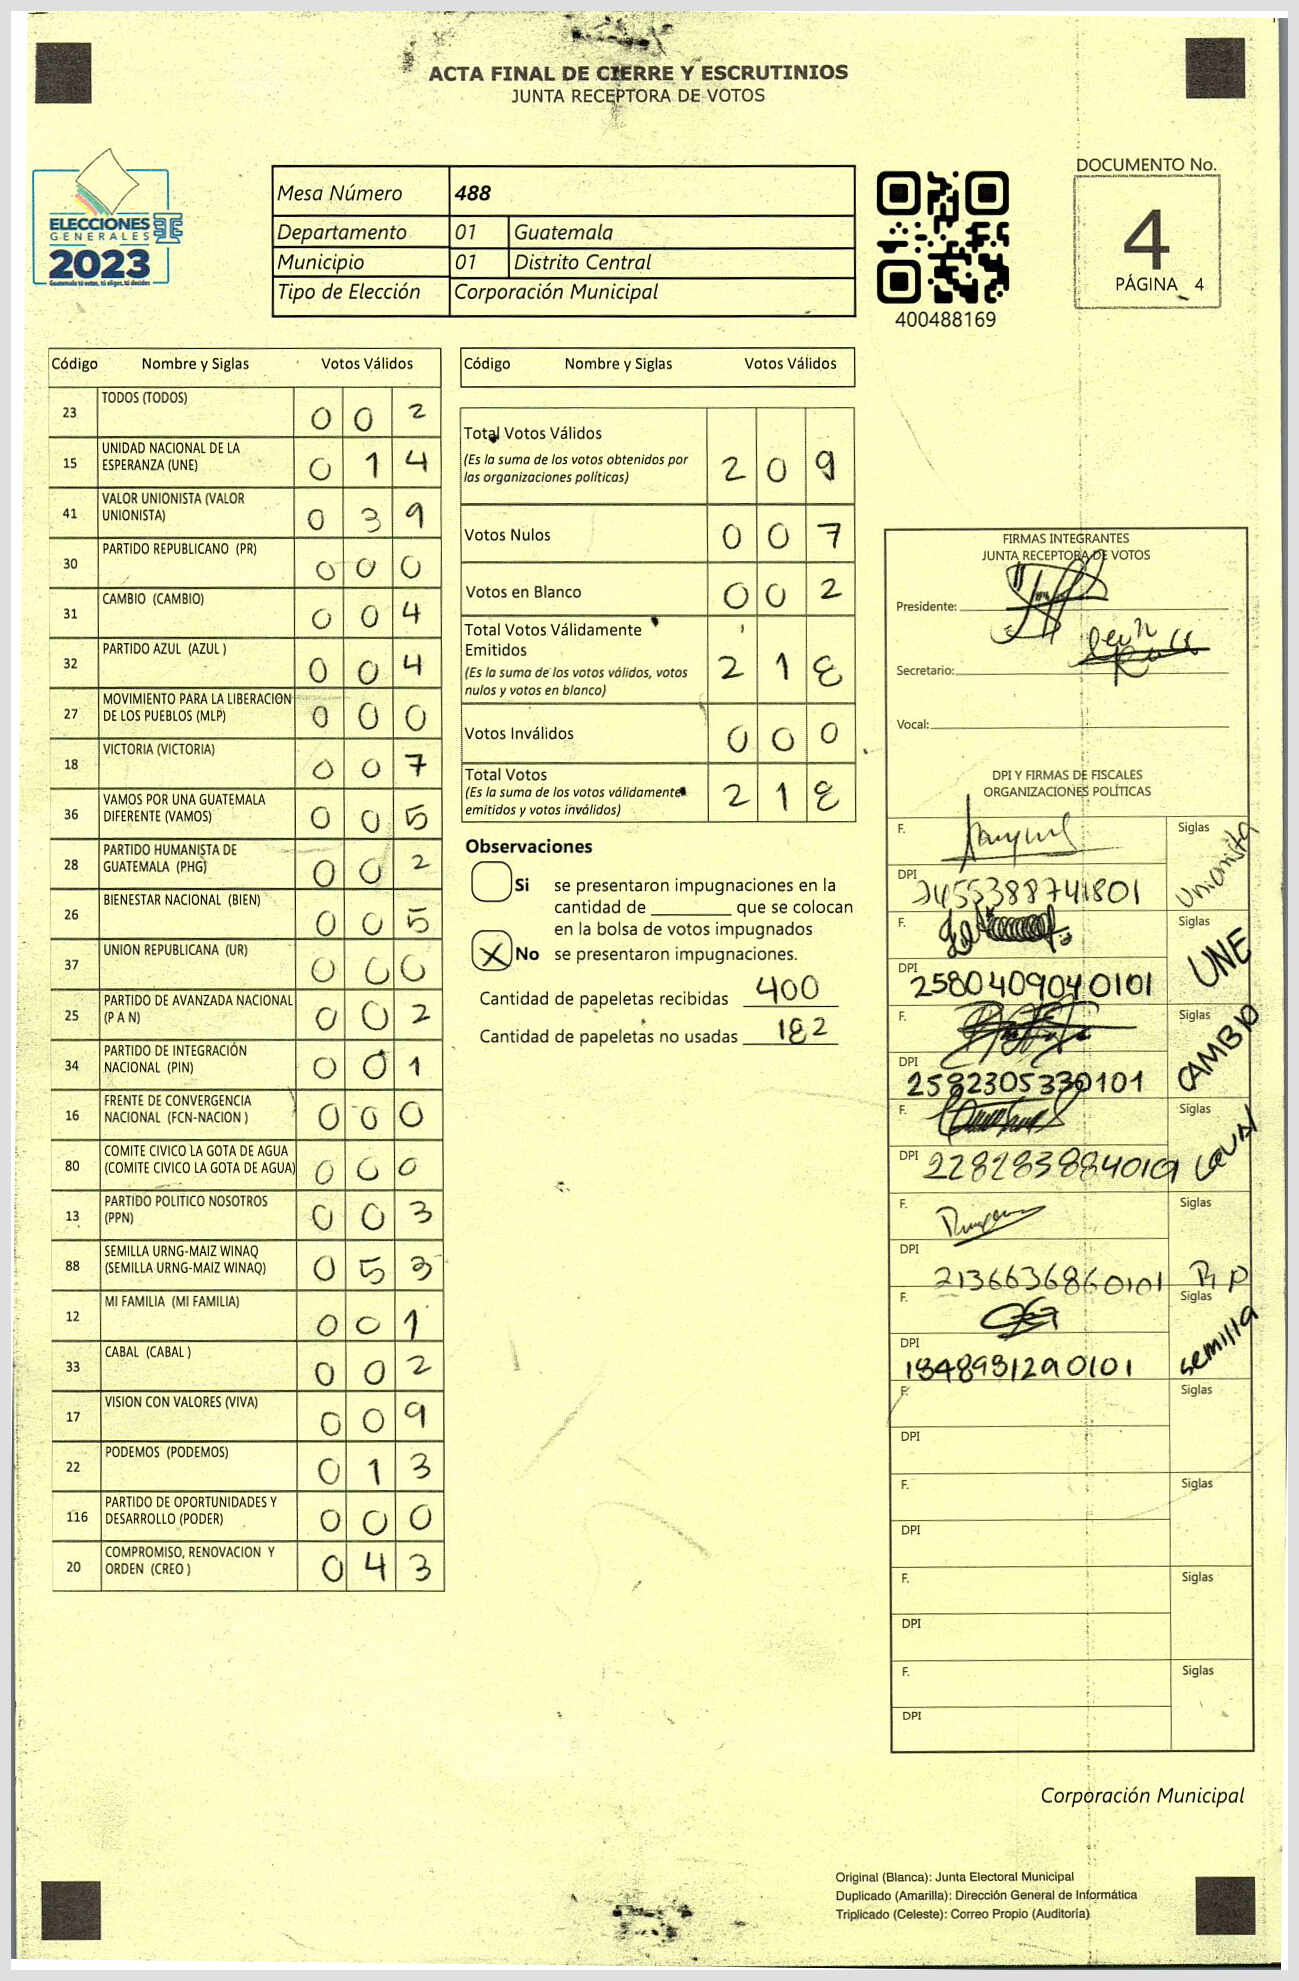 ACTA FINAL DE CIERRE Y ESCRUTINIOS
JUNTA RECEPTORA DE VOTOS
ELECCIONES
GENERALES
2023
Guatemala tú votas, tú eliges, tú decides
Mesa Número 488
Departamento 01 Guatemala
Municipio 01 Distrito Central
Tipo de Elección Corporación Municipal
400488169
DOCUMENTO No.
4
PÁGINA 4
Código Nombre y Siglas Votos Válidos
23 TODOS (TODOS) 0 0 2
15 UNIDAD NACIONAL DE LA
ESPERANZA (UNE) 0 1 4
41 VALOR UNIONISTA (VALOR
UNIONISTA) 0 3 9
30 PARTIDO REPUBLICANO (PR) 0 0 0
31 CAMBIO (CAMBIO) 0 0 4
32 PARTIDO AZUL (AZUL ) 0 0 4
27 MOVIMIENTO PARA LA LIBERACION
DE LOS PUEBLOS (MLP) 0 0 0
18 VICTORIA (VICTORIA) 0 0 7
36 VAMOS POR UNA GUATEMALA
DIFERENTE (VAMOS) 0 0 5
28 PARTIDO HUMANISTA DE
GUATEMALA (PHG) 0 0 2
26 BIENESTAR NACIONAL (BIEN) 0 0 5
37 UNION REPUBLICANA (UR) 0 0 0
25 PARTIDO DE AVANZADA NACIONAL
(P A N) 0 0 2
34 PARTIDO DE INTEGRACIÓN
NACIONAL (PIN) 0 0 1
16 FRENTE DE CONVERGENCIA
NACIONAL (FCN-NACION ) 0 0 0
80 COMITE CIVICO LA GOTA DE AGUA
(COMITE CIVICO LA GOTA DE AGUA) 0 0 0
13 PARTIDO POLITICO NOSOTROS
(PPN) 0 0 3
88 SEMILLA URNG-MAIZ WINAQ
(SEMILLA URNG-MAIZ WINAQ) 0 5 3
12 MI FAMILIA (MI FAMILIA) 0 0 1
33 CABAL (CABAL ) 0 0 2
17 VISION CON VALORES (VIVA) 0 0 9
22 PODEMOS (PODEMOS) 0 1 3
116 PARTIDO DE OPORTUNIDADES Y
DESARROLLO (PODER) 0 0 0
20 COMPROMISO, RENOVACION Y
ORDEN (CREO ) 0 4 3
Código Nombre y Siglas Votos Válidos
Total Votos Válidos
(Es la suma de los votos obtenidos por
las organizaciones políticas) 2 0 9
Votos Nulos 0 0 7
Votos en Blanco 0 0 2
Total Votos Válidamente
Emitidos
(Es la suma de los votos válidos, votos
nulos y votos en blanco) 2 1 8
Votos Inválidos 0 0 0
Total Votos
(Es la suma de los votos válidamente
emitidos y votos inválidos) 2 1 8
Observaciones
Si se presentaron impugnaciones en la
cantidad de ________ que se colocan
en la bolsa de votos impugnados
X No se presentaron impugnaciones.
Cantidad de papeletas recibidas 400
Cantidad de papeletas no usadas 182
FIRMAS INTEGRANTES
JUNTA RECEPTORA DE VOTOS
Presidente:
Secretario:
Vocal:
DPI Y FIRMAS DE FISCALES
ORGANIZACIONES POLÍTICAS
F. Siglas
Unionista
DPI
F. Siglas
UNE
DPI 2580409040101
F. Siglas
CAMBIO
DPI 2582305330101
F. Siglas
DPI
F. Siglas
DPI 2136636860101
F. Siglas
semilla
DPI
F. Siglas
DPI
F. Siglas
DPI
F. Siglas
DPI
F. Siglas
DPI
Corporación Municipal
Original (Blanca): Junta Electoral Municipal
Duplicado (Amarilla): Dirección General de Informática
Triplicado (Celeste): Correo Propio (Auditoría)